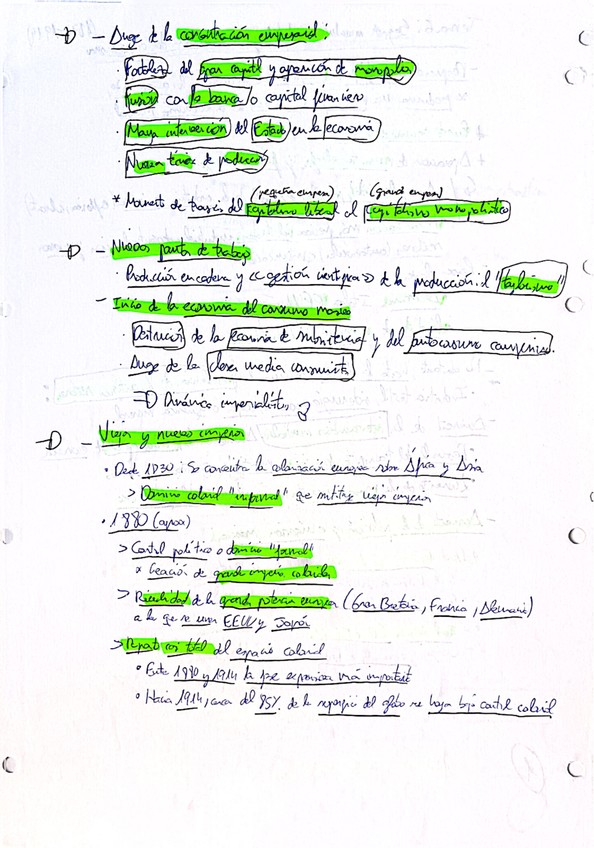 - Auge de la concentración empresarial:
· Fortaleza del gran capital y aparición de monopolios
· Fusión con la banca o capital financiero
· Mayor intervención del Estado en la economía
· Nuevas de producción
(pequeña empresa) (grand empresa)
* Momento de del capitalismo liberal al capitalismo monopolístico
- Nuevas pautas de trabajo
· Producción en cadena y << gestión científica >> de la producción: el "taylorismo"
- Inicio de la economía del consumo masivo
· Destrucción de la economía de subsistencia y del autoconsumo campesino.
· Auge de la clase media consumista
⇒ Dinámica imperialista
- Viejos y nuevos imperios
· Desde 1830: Se concentra la colonización europea sobre África y Asia
> Dominio colonial "informal" que sustituye viejos imperios
· 1880 (aprox)
> Control político o dominio "formal"
* Creación de grandes imperios coloniales
> Rivalidad de la grandes potencias europeas (Gran Bretaña, Francia, Alemania)
a la que se unen EEUU y Japón
> Reparto casi total del espacio colonial
· Entre 1880 y 1914 la fase expansiva más importante
· Hacia 1914, cerca del 85% de la superficie del globo se haya bajo control colonial